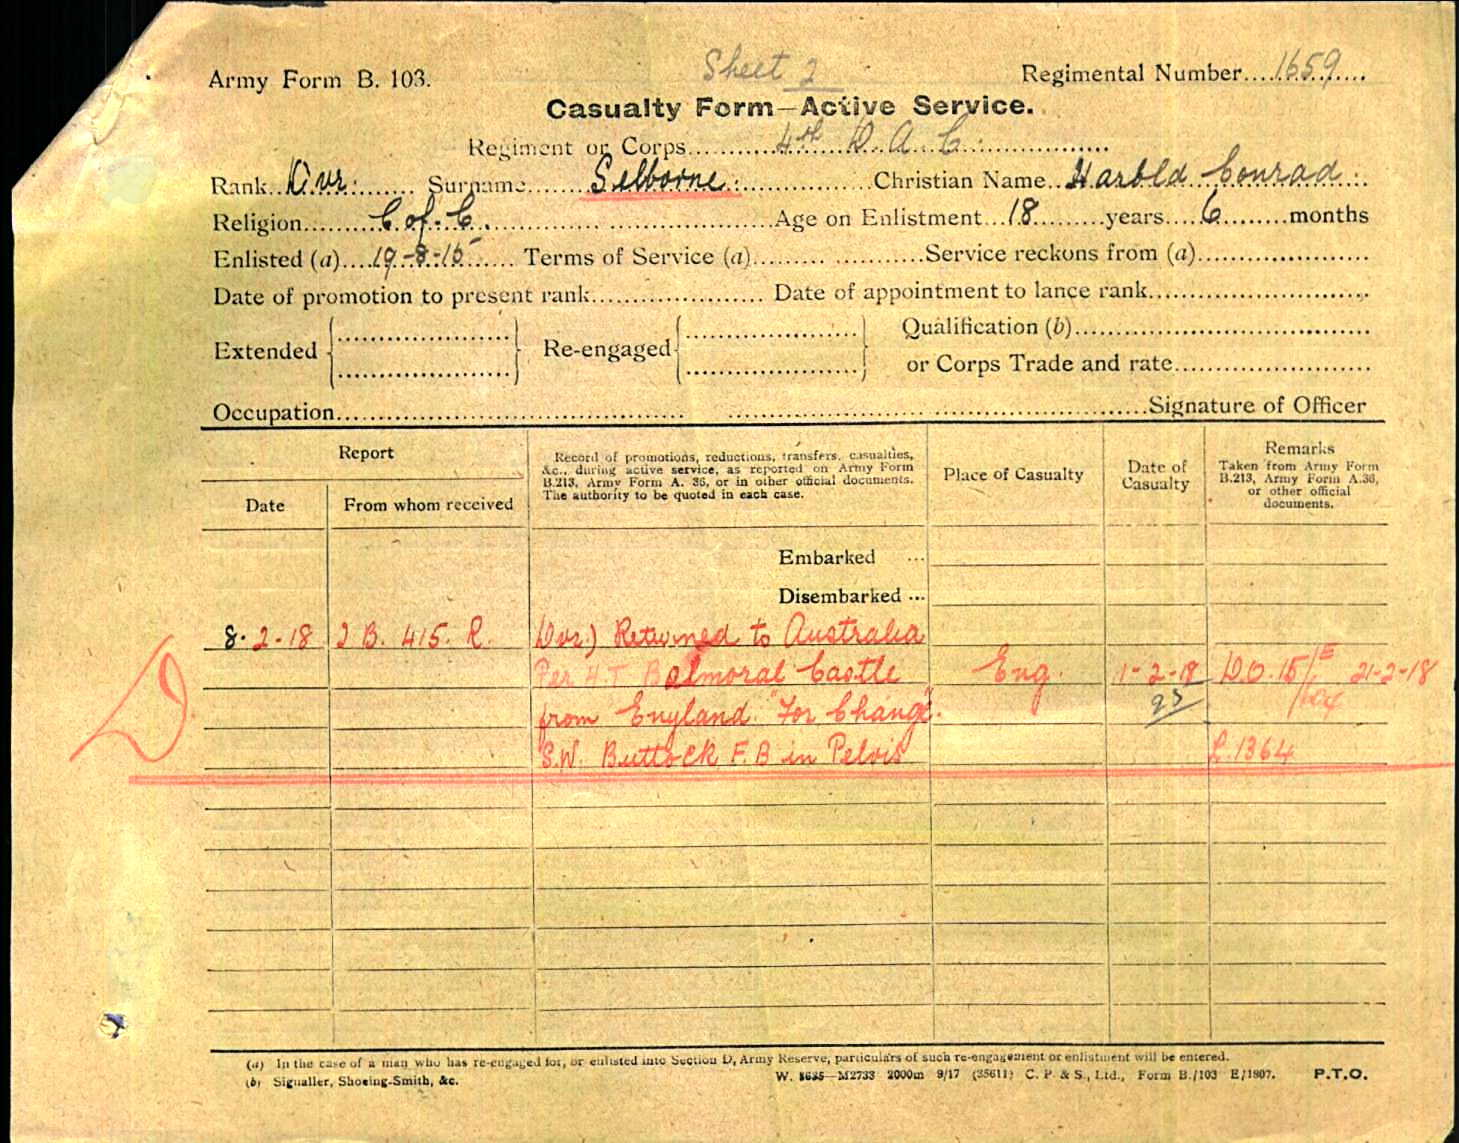 Sheet 2
Army Form B. 103.
Regimental Number....1659.....
Casualty Form—Active Service.
Regiment or Corps.........4th D. A. C..............
Rank..Dvr....... Surname.......Selborne...............Christian Name..Harold Conrad..
Religion........C of C............................Age on Enlistment...18.........years....6........months
Enlisted (a)....19-8-15...... Terms of Service (a)......................Service reckons from (a).....................
Date of promotion to present rank...................... Date of appointment to lance rank............................
Extended Re-engaged Qualification (b)......................................
or Corps Trade and rate.........................
Occupation.............................................................................Signature of Officer
Report
Date
From whom received
Record of promotions, reductions, transfers, casualties,
&c., during active service, as reported on Army Form
B.213, Army Form A. 36, or in other official documents.
The authority to be quoted in each case.
Place of Casualty
Date of
Casualty
Remarks
Taken from Army Form
B.213, Army Form A.36,
or other official
documents.
Embarked ...
Disembarked ...
8-2-18 B. 415. R. Dvr.) Returned to Australia
Per H.T Balmoral Castle Eng. 1-2-18 D.O. 15/ 21-2-18
from England. "For Change".
S.W. Buttock F.B in Pelvis L.1364
D
(a) In the case of a man who has re-engaged for, or enlisted into Section D, Army Reserve, particulars of such re-engagement or enlistment will be entered.
(b) Signaller, Shoeing-Smith, &c. W. 8635—M2733 2000m 9/17 (35611) C. P & S., Ltd., Form B./103 E/1807. P.T.O.